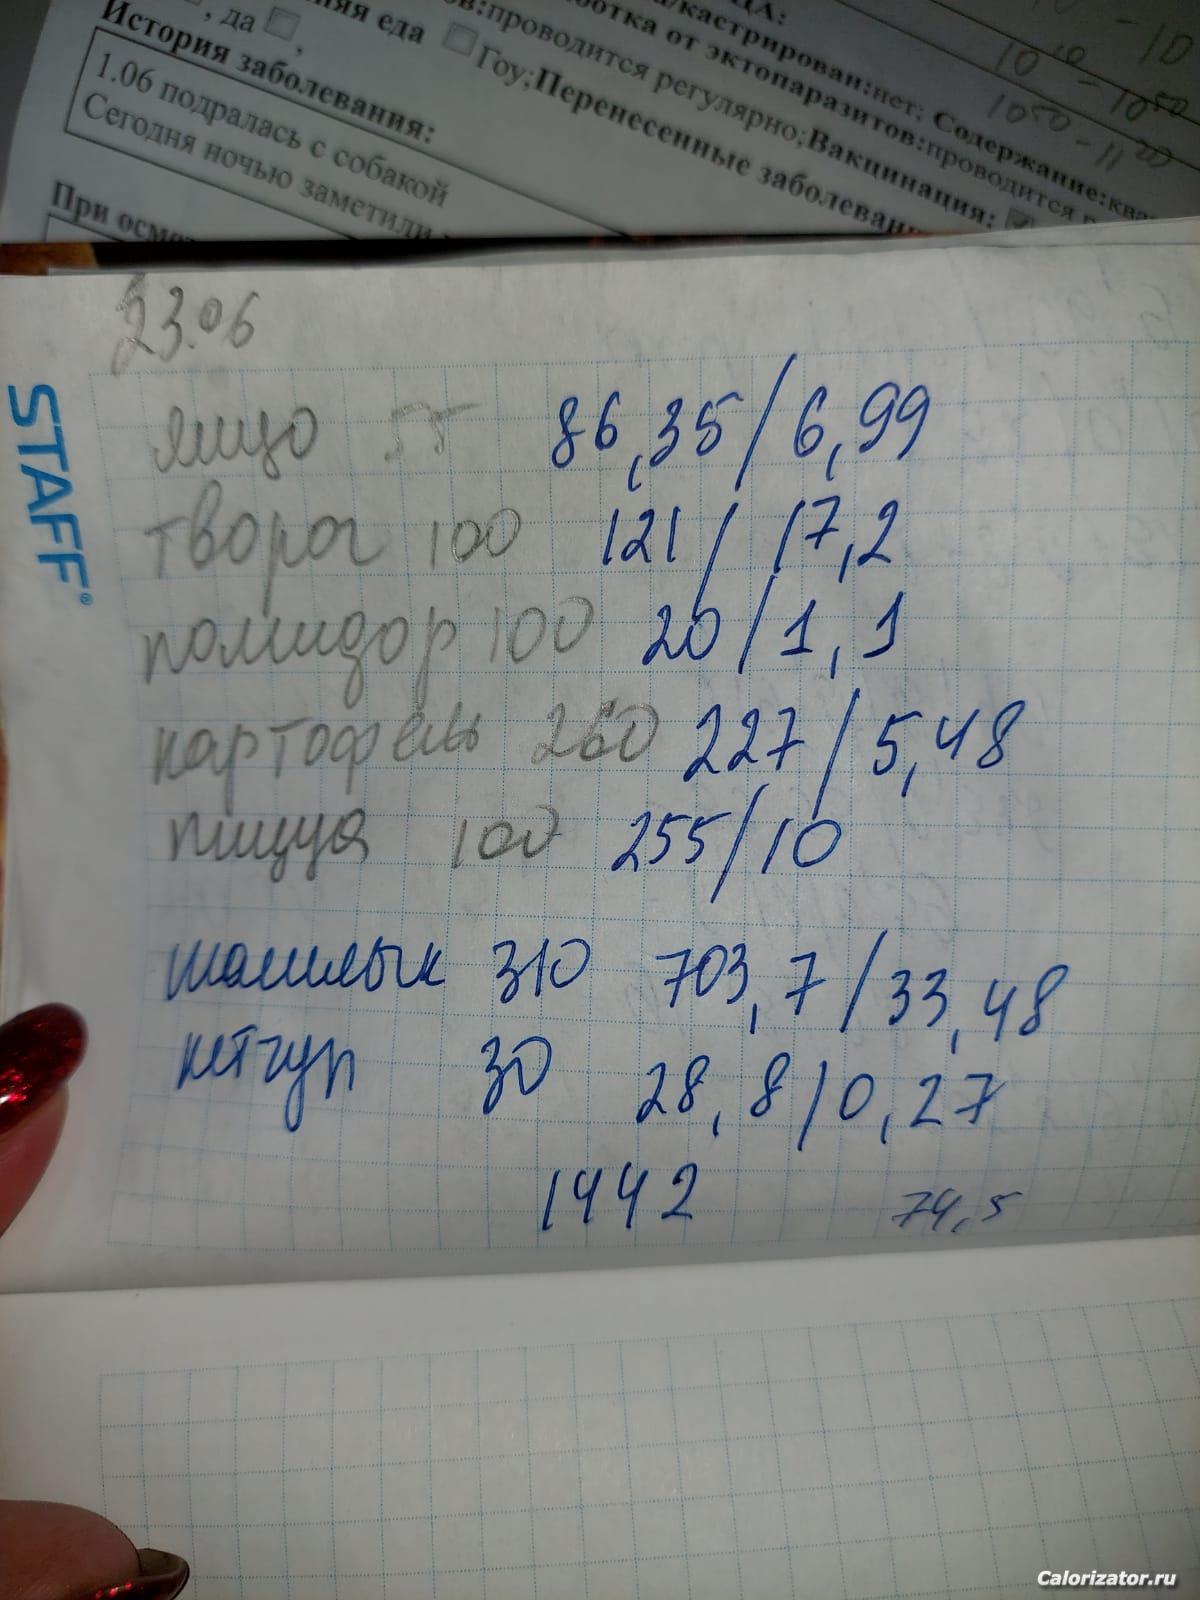 ЦА:
, да
няя еда
ов:проводится регулярно;Вакцинация:
а/кастрирован:нет; Содержание:ква
ботка от эктопаразитов:проводится р
Гоу;Перенесенные заболеван
История заболевания:
1.06 подралась с собакой
Сегодня ночью заметили
При осмот
10 10 - 10 50
10 50 - 11 20
STAFF®
23.06
яйцо 55 86,35/6,99
творог 100 121/17,2
помидор 100 20/1,1
картофель 260 227/5,48
пицца 100 255/10
шашлык 310 703,7/33,48
кетчуп 30 28,8/0,27
1442 74,5
Calorizator.ru